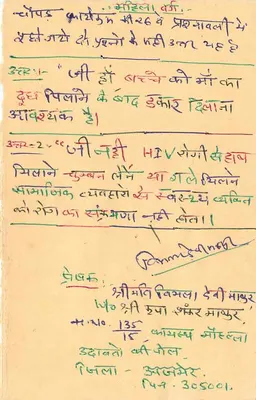 महिला वर्ग
चौपड़ कार्यक्रम में
पूछे गये दो प्रश्नों के सही उत्तर यह है
उत्तर:1- "जी हाँ बच्चे को माँ का
दूध पिलाने के बाद डकार दिलाना
आवश्यक है।
उत्तर=2-"जी नहीं HIV रोगी से हाथ
मिलाने चुम्बन लेने या गले मिलने
सामाजिक व्यवहारों से स्वस्थ्य व्यक्ति
को रोग का संक्रमण नहीं होता।
प्रेषक:
श्रीमति विमला देवी माथुर
W/o श्री कृपा शंकर माथुर
H.No. 135/15 कायस्थ मौहल्ला
उदावतो की पोल
जिला- अजमेर
पिन-305001.